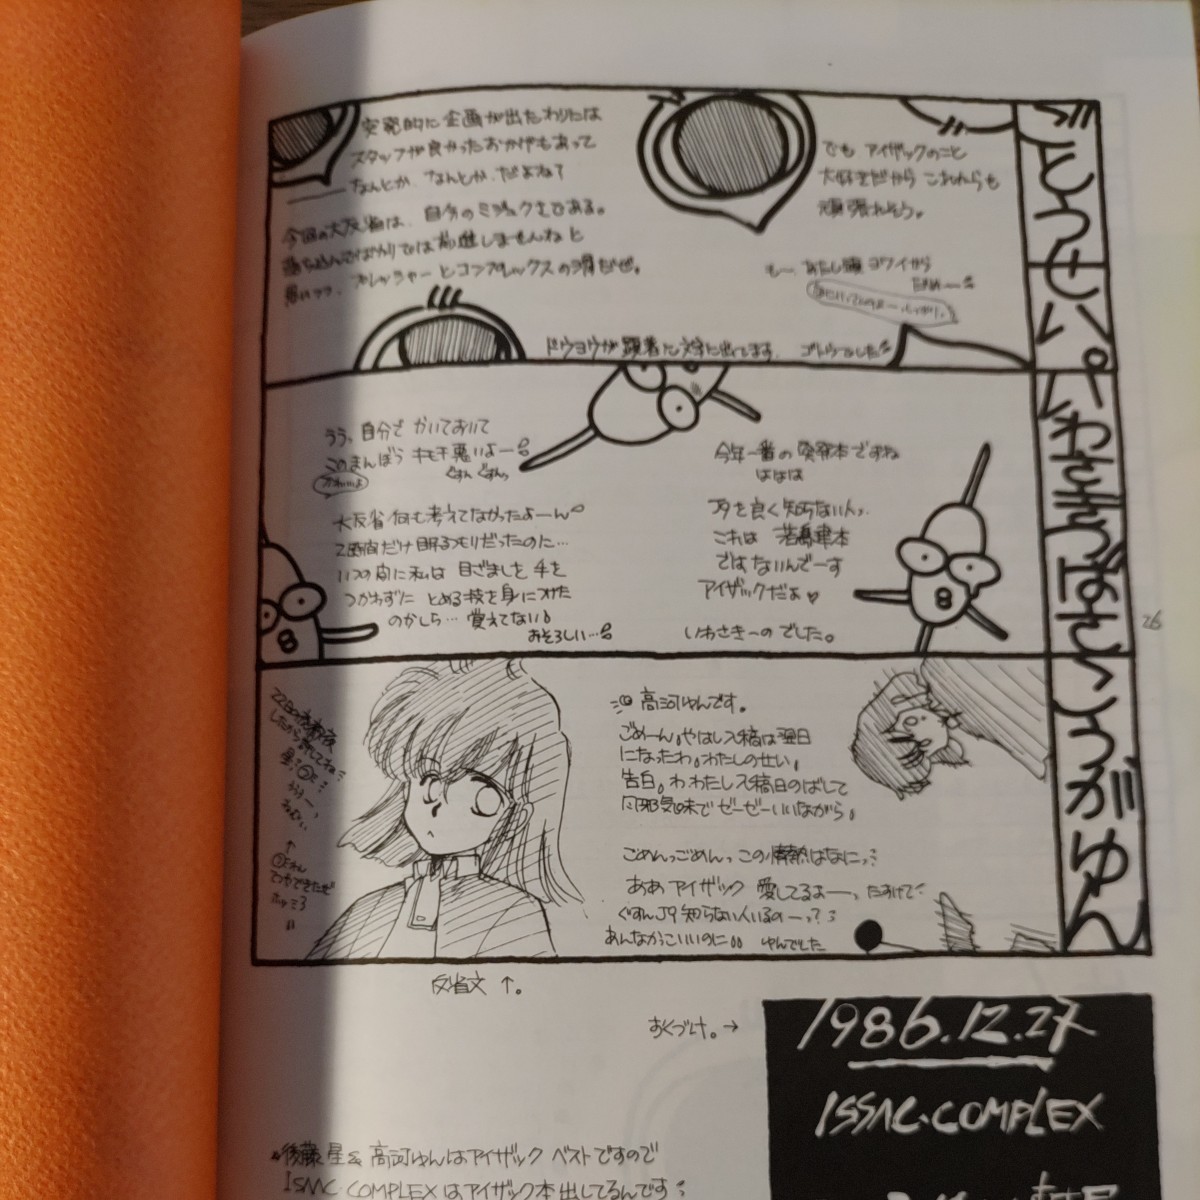 突発的に企画が出たわりには
スタッフが良かったおかげもあって
なんとか、なんとか、だよね?
今回の大反省は、自分のミジュクさである。
落ち込んでばかりでは前進しませんねと
思いつつ、プレッシャーとコンプレックスの渦だぜ。
でも アイザックのこと
大好きだから これからも
頑張れそう。
もー、あたし頭 ヨワイから
ドウヨウが顕著に文字に出てます。ゴトウでした
ごとうせい
うう、自分で かいておいて
このまんぼう キモチ悪いよー
かわいいよ
ぐすん ぐすんっ
大反省何も考えてなかったよーん
2時間だけ眠るつもりだったのに…
いつの間に私は 目ざましを 手を
つかわずに とめる技を身につけた
のかしら… 覚えてない
おそろしい…
今年一番の突発本ですね
ははは
J9を良く知らない人、
これは 若島津本
ではないんでーす
アイザックだよ♥
いわさきーの でした。
いわさきつばさ
高河ゆんです。
ごめーん。やはし入稿は翌日
になったわ。わたしのせい。
告白。わわたし入稿日のばして
風邪気味でゼーゼーいいながら。
ごめんっごめんっ この情熱はなにっ
ああ アイザック 愛してるよーっ たすけて
ぐすん J9 知らない人いるのーっ?
あんなかっこいいのに ゆんでした
こうがゆん
反省文 ↑。
26
おくづけ。→
1986.12.27
ISSAC・COMPLEX
後藤星&高河ゆんはアイザック ベストですので
ISSAC・COMPLEXはアイザック本出してるんです